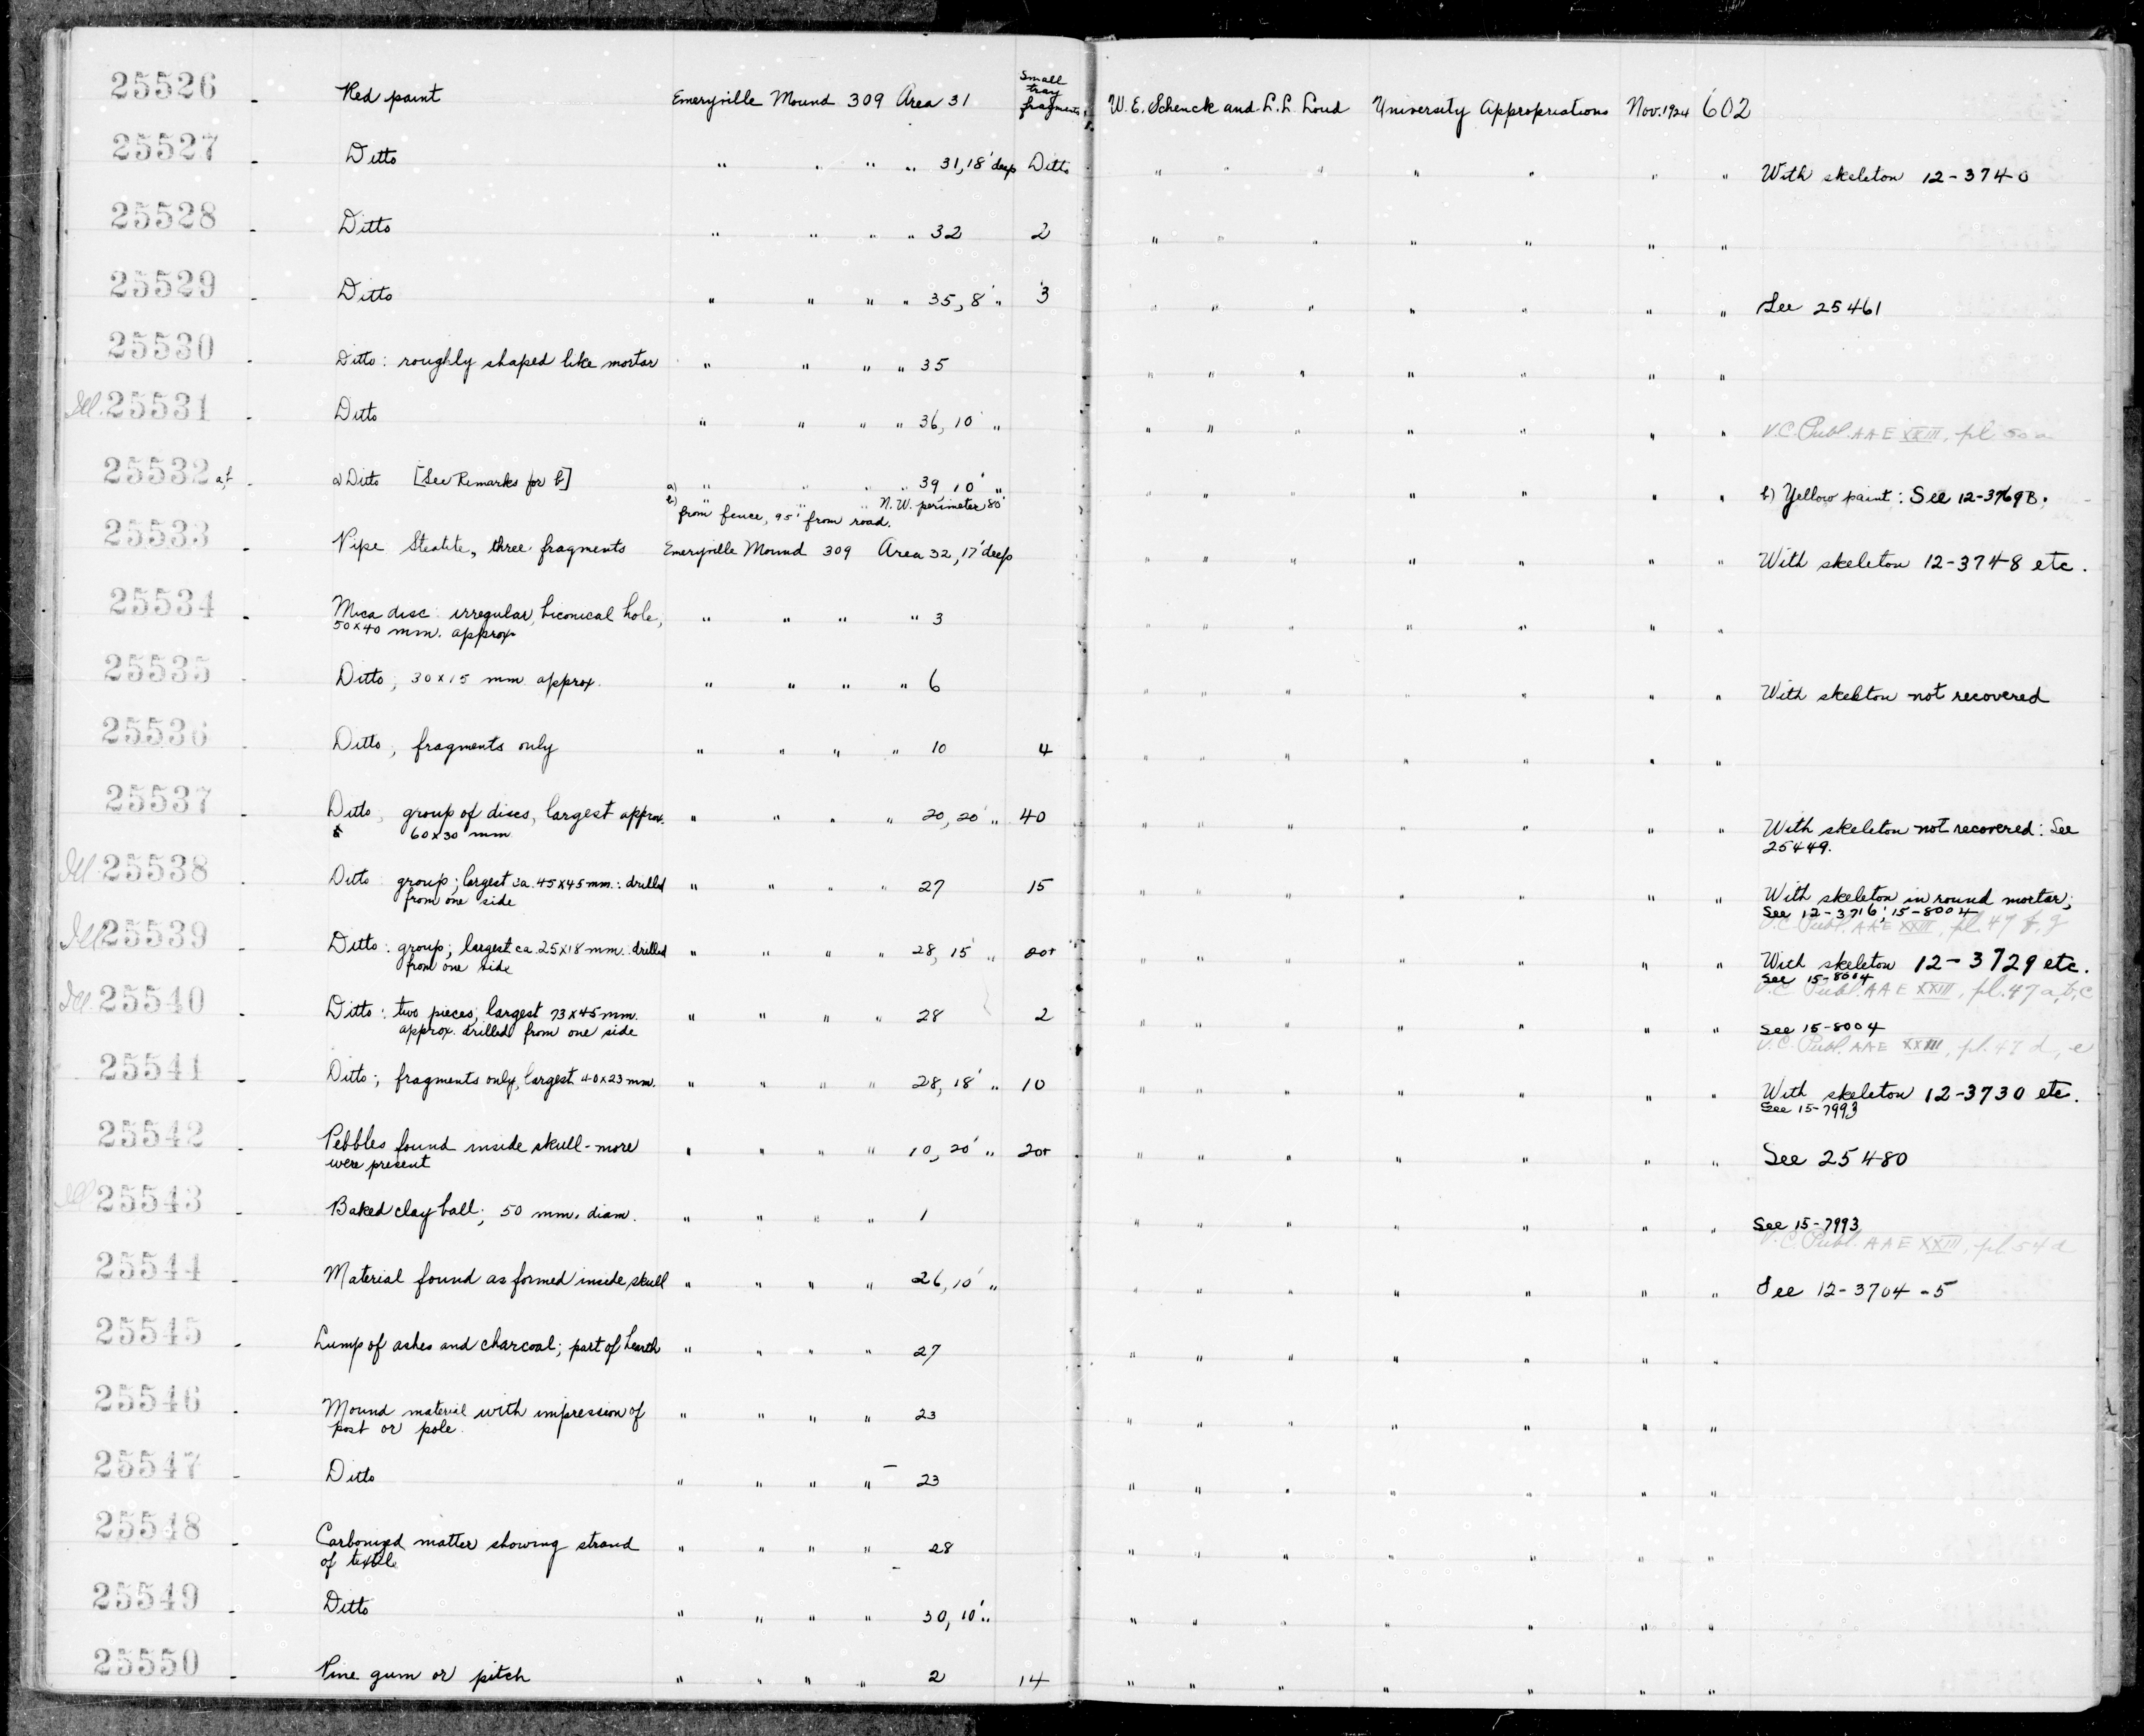 25526 - Red paint Emeryville Mound 309 Area 31 Small tray fragments W. E. Schenck and L. L. Loud University Appropriations Nov. 1924 602
25527 - Ditto " " " " 31, 18' deep Ditto " " " " " " " With skeleton 12-3740
25528 - Ditto " " " " 32 2 " " " " " " "
25529 - Ditto " " " " 35, 8' " 3 " " " " " " " See 25461
25530 - Ditto: roughly shaped like mortar " " " " 35 " " " " " " "
Ill. 25531 - Ditto " " " " 36, 10' " " " " " " " " U.C. Publ. AAE XXIII, pl 50a
25532 a,b - a) Ditto [See Remarks for b] a) " " " " 39 10' " " " " " " " " b) Yellow paint: See 12-3769B.
b) " " " N.W. perimeter 80'
from fence, 95' from road.
25533 - Pipe Steatite, three fragments Emeryville Mound 309 Area 32, 17' deep " " " " " " " With skeleton 12-3748 etc.
25534 - Mica disc: irregular, biconical hole, " " " " 3 " " " " " " "
50x40 mm. approx.
25535 - Ditto; 30x15 mm approx. " " " " 6 " " " " " " " With skeleton not recovered
25536 - Ditto, fragments only " " " " 10 4 " " " " " " "
25537 - Ditto, group of discs, largest approx. " " " " 20, 20' " 40 " " " " " " " With skeleton not recovered: See
60x30 mm 25449.
Ill 25538 - Ditto group; largest ca. 45x45 mm.: drilled " " " " 27 15 " " " " " " " With skeleton in round mortar;
from one side See 12-3716; 15-8004
U.C. Publ. AAE XXIII, pl. 47 f, g
Ill 25539 - Ditto: group; largest ca 25x18 mm. drilled " " " " 28, 15' " 20+ " " " " " " " With skeleton 12-3729 etc.
from one side See 15-8004
U.C. Publ. AAE XXIII, pl. 47 a, b, c
Ill. 25540 - Ditto: two pieces; largest 73x45 mm. " " " " 28 2 " " " " " " " See 15-8004
approx. drilled from one side U.C. Publ. AAE XXIII, pl. 47 d, e
25541 - Ditto; fragments only, largest 40x23 mm. " " " " 28, 18' " 10 " " " " " " " With skeleton 12-3730 etc.
See 15-7993
25542 - Pebbles found inside skull - more " " " " 10, 20' " 20+ " " " " " " " See 25480
were present
Ill 25543 - Baked clay ball; 50 mm. diam. " " " " 1 " " " " " " " See 15-7993
U.C. Publ. AAE XXIII, pl. 54 d
25544 - Material found as formed inside skull " " " " 26, 10' " " " " " " " " See 12-3704-5
25545 - Lump of ashes and charcoal; part of hearth " " " " 27 " " " " " " "
25546 - Mound material with impression of " " " " 23 " " " " " " "
post or pole.
25547 - Ditto " " " " 23 " " " " " " "
25548 - Carbonized matter showing strand " " " " 28 " " " " " " "
of textile
25549 - Ditto " " " " 30, 10' " " " " " " " "
25550 - Pine gum or pitch " " " " 2 14 " " " " " " "